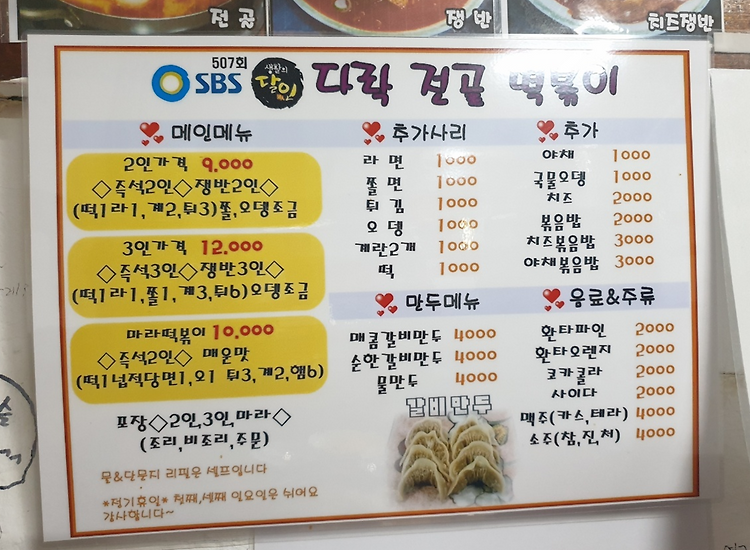 전골
쟁반
치즈쟁반
507회
SBS 생활의 달인 다락 전골 떡볶이
메인메뉴
2인가격 9,000
◇즉석2인◇쟁반2인◇
(떡1라1,계2,튀3)쫄,오뎅조금
3인가격 12,000
◇즉석3인◇쟁반3인◇
(떡1라1,쫄1,계3,튀6)오뎅조금
마라떡볶이 10,000
◇즉석2인◇ 매운맛
(떡1넙적당면1,오1 튀3,계2,햄6)
포장◇2인,3인,마라◇
(조리,비조리,주문)
물&단무지 리필은 셀프입니다
*정기휴일* 첫째,세째 일요일은 쉬어요
감사합니다~
추가사리
라면 1000
쫄면 1000
튀김 1000
오뎅 1000
계란2개 1000
떡 1000
만두메뉴
매콤갈비만두 4000
순한갈비만두 4000
물만두 4000
갈비만두
추가
야채 1000
국물오뎅 1000
치즈 2000
볶음밥 2000
치즈볶음밥 3000
야채볶음밥 3000
음료&주류
환타파인 2000
환타오렌지 2000
코카콜라 2000
사이다 2000
맥주(카스,테라) 4000
소주(참,진,처) 4000